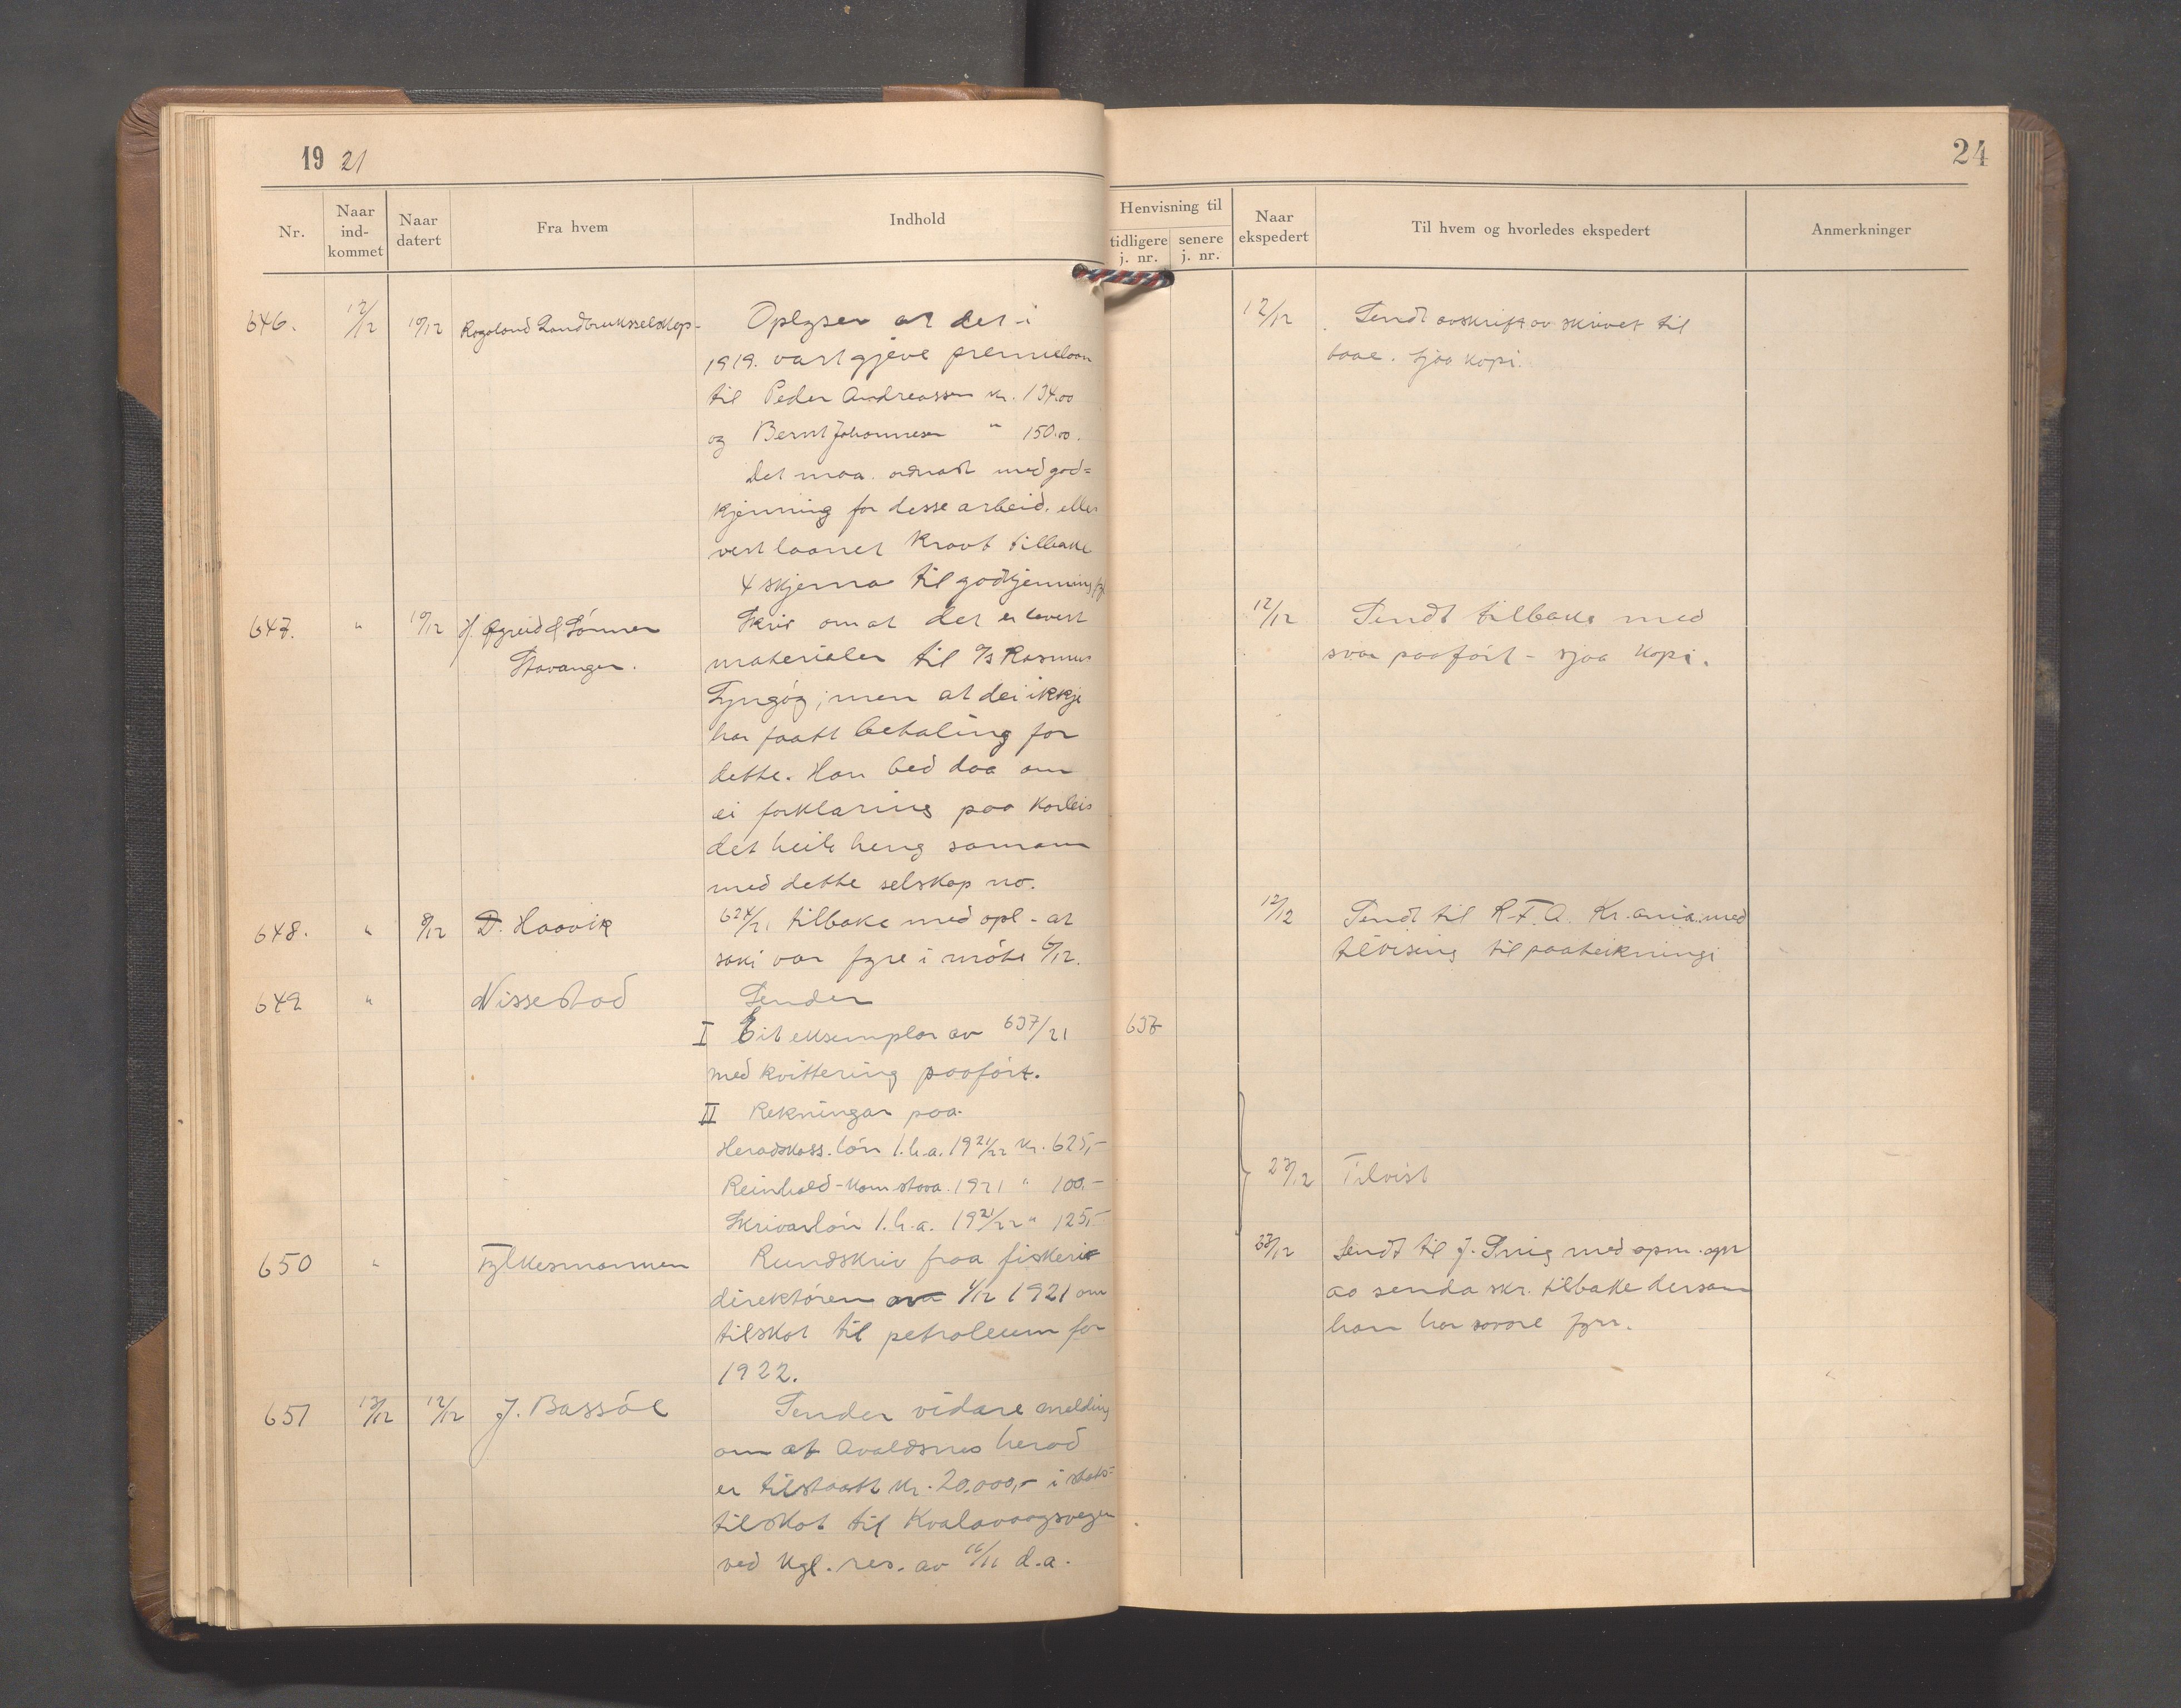 19 21
24
Nr.
Naar ind-kommet
Naar datert
Fra hvem
Indhold
Henvisning til
tidligere j. nr.
senere j. nr.
Naar ekspedert
Til hvem og hvorledes ekspedert
Anmerkninger
646. 12/12 10/12 Rogaland Landbruksselskap- Oplyser at det i
1919. vart gjeve premielaan
til Peder Andreassen kr. 134.00
og Bernt Johannesen " 150.00.
Det maa ordnast med god=
kjenning for desse arbeid. eller
vert laanet kravt tilbake
4 skjema til godkjenning
12/12 Sendt avskrift av skrivet til
baae. sjaa kopi.
647. " 10/12 J. Øgreid & Sønner Skriv om at det er levert
Stavanger. materialer til A/S Rasmus
Lyngøy; men at dei ikkje
har faatt betaling for
dette. Han bed daa om
ei forklaring paa korleis
det heile heng saman
med dette selskap no.
12/12 Sendt tilbake med
svar paaført - sjaa kopi.
648. " 8/12 D. Haavik 624/21 tilbake med opl. at
saki var fyre i møte 6/12.
12/12 Sendt til R.F.A. Kr.ania med
tilvising til paateikningi
649 " Nissestad Sender
I Eit eksemplar av 637/21 637
med kvittering paaført.
II Rekningar paa
Heradskass. løn 1.h.a. 1921/22 kr. 625,-
Reinhald-kom.stova. 1921 " 100.-
Skrivarløn 1.h.a. 1921/22 " 125,-
23/12 Tilvist
650 " Fylkesmannen Rundskriv fraa fiskeri
direktøren ava 1/12 1921 om
tilskot til petroleum for
1922.
23/12 Sendt til J. Snig med opm.
ao senda skr. tilbake dersom
han har fyrr.
651 13/12 12/12 J. Bassøe Sender vidare melding
om at Avaldsnes herad
er tilstaatt kr. 20.000,- i stats=
tilskot til Kvalavaagsvegen
ved kgl. res. av 11/11 d.a.